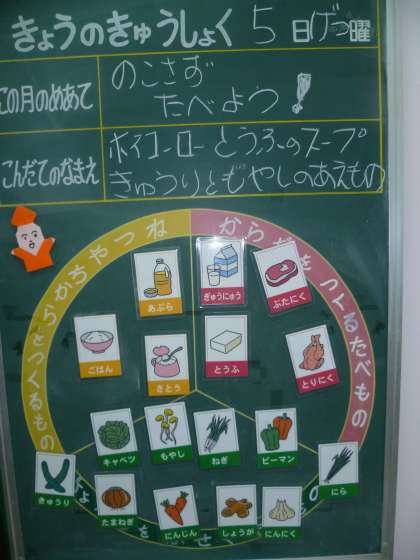 きょうのきゅうしょく 5日げつ曜
この月のめあて
のこさず
たべよう!
こんだてのなまえ
ホイコーロー とうふのスープ
きゅうりともやしのあえもの
ねつやちからをつくるもの
からだをつくるたべもの
あぶら
ぎゅうにゅう
ぶたにく
ごはん
さとう
とうふ
とりにく
キャベツ
もやし
ねぎ
ピーマン
きゅうり
たまねぎ
にんじん
しょうが
にんにく
にら